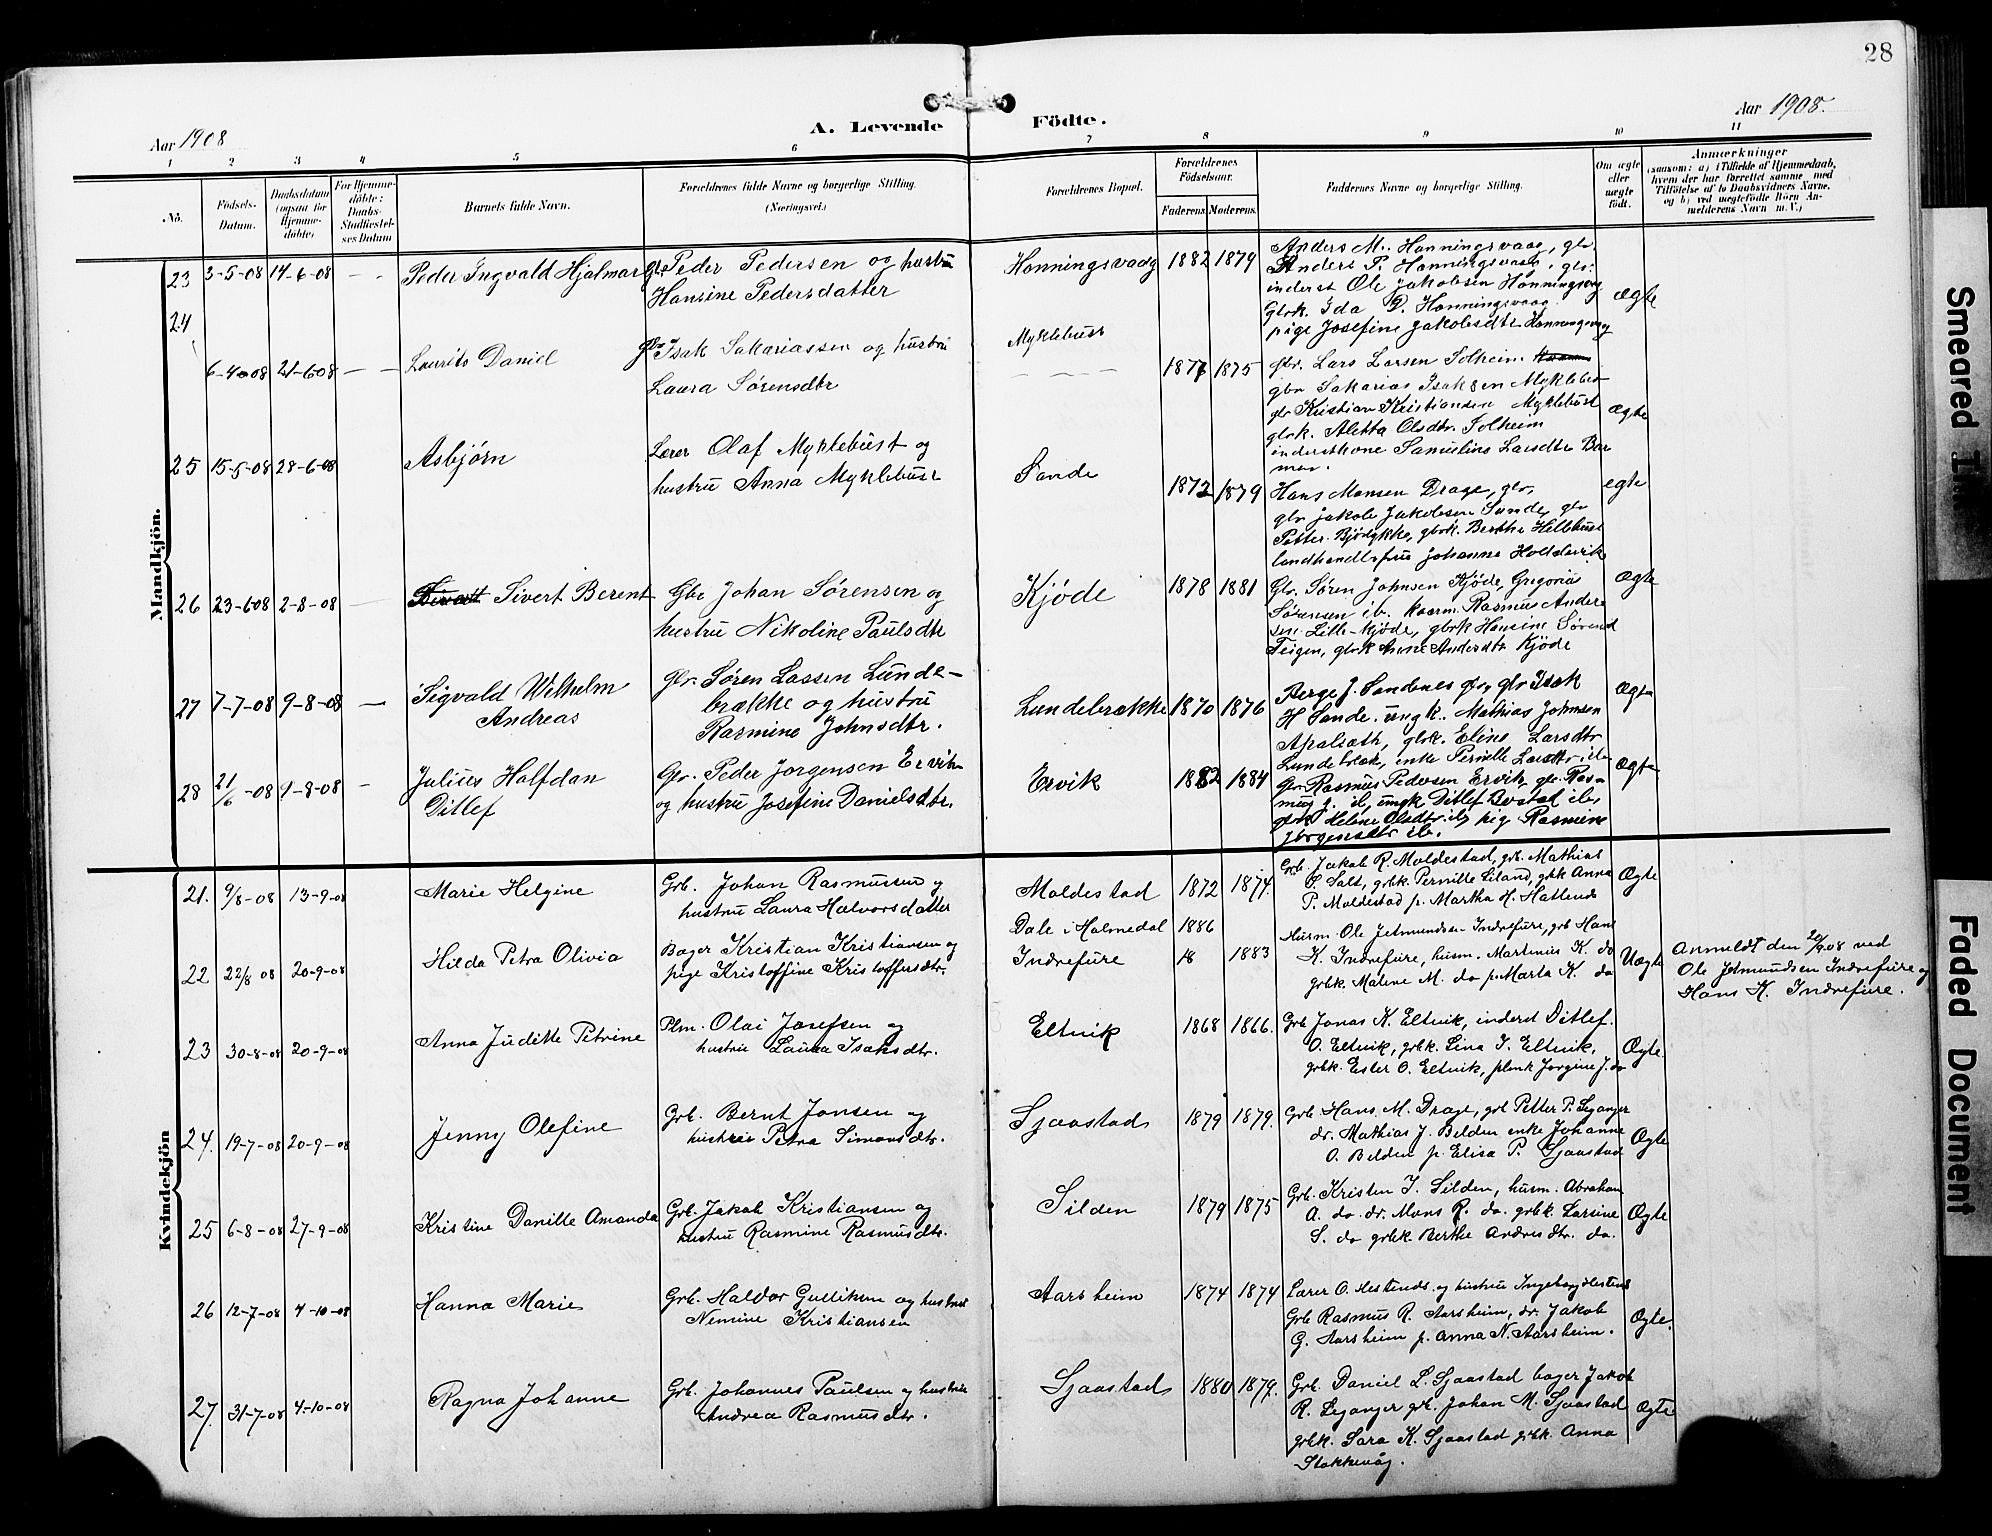 28
Aar 1908
A. Levende Födte.
Aar 1908.
1 2 3 4 5 6 7 8 9 10 11
No.
Födsels-Datum.
Daabsdatum (ogsaa for Hjemme-döbte)
For Hjemme-döbte: Daabs-Stadfæstel-ses Datum
Barnets fulde Navn.
Forældrenes fulde Navne og borgerlige Stilling.
(Næringsvei.)
Forældrenes Bopæl.
Forældrenes Födselsaar.
Faderens. Moderens.
Faddernes Navne og borgerlige Stilling.
Om ægte eller uægte födt.
Anmærkninger
(saasom: a) i Tilfælde af Hjemmedaab,
hvem der har forrettet samme, med
Tilföielse af to Daabsvidners Navne,
og b) ved uægtefödte Börn An-
melderens Navn m.V.)
Mandkjön.
23 3-5-08 14-6-08 — Peder Ingvald Hjalmar
Gbr Peder Pedersen og hustru
Hansine Pedersdatter
Honningsvaag 1882 1879
Anders M. Honningsvaag, gbr.
Anders P. Honningsvaag, gbr.
inderst Ole Jakobsen Honningsvag
Gbrk. Ida D. Honningsvaag
pige Josefine Jakobsdtr Honningsvag
Ægte
24
6-4-08 21-6-08 — Laurits Daniel
Gbr Isak Sakariassen og hustru
Laura Sørensdtr
Myklebust
1877 1875
gbr. Lars Larsen Solheim
gbr Sakarias Isaksen Myklebust
gbr Kristian Kristiansen Myklebust
gbrk. Aletta Olsdtr. Solheim
inderstkone Samuline Larsdtr Bar
men.
Ægte
25 15-5-08 28-6-08 Asbjørn
Lærer Olaf Myklebust og
hustru Anna Myklebust
Sande
1872 1879
Hans Monsen Drage, gbr,
gbr Jakob Jakobsen Sande, gbr
Petter Bjødykke, gbrk. Berthe Hellebust
landhandlerfrue Johanne Holdevik
egte
26 23-6-08 2-8-08 Sivert Berent
Gbr Johan Sørensen og
hustru Nikoline Paulsdtr
Kjøde 1878 1881
Gbr. Søren Johnsen Kjøde, Gregorius
Sørensen ib. kaarm. Rasmus Ander
sen Lille-Kjøde, gbrk Hansine Sørensd
Teigen, gbrk Anne Andersdtr Kjøde
Ægte
27 7-7-08 9-8-08 — Sigvald Wilhelm
Andreas
Gbr. Søren Lassen Lunde-
brække og hustru
Rasmine Johnsdtr.
Lundebrække 1870 1876
Berge J. Sandenes gbr, gbr Isak
H Sande. ungk. Mathias Johnsen
Apalsæth, gbrk. Eline Larsdtr
Lundebræk, enke Pernille Larsdtr. ib.
Ægte
28 21/6-08 9-8-08 — Julius Halfdan
Ditlef
Gbr. Peder Jørgensen Ervik
og hustru Josefine Danielsdtr.
Ervik 1882 1884
Gbr Rasmus Pedersen Ervik, gbr. Ras-
mus J. ib, ungk Ditlef Berstad ib,
gbrk Helene Olsdtr ib, pige Rasmine
Jørgensdtr ib.
Ægte
Kvindekjön
21. 9/8-08 13-9-08 Marie Helgine
Grb. Johan Rasmussen og
hustru Laura Halvorsdatter
Moldestad 1872 1874.
Grb. Jakob R. Moldestad, grb. Mathias
S. Salt, grbk. Pernille Liland, gbk Anna
P. Moldestad p. Martha H. Hatlenes
Ægte
22 22/8 08 20-9-08 Hilda Petra Olivia
Bager Kristian Kristiansen og
pige Kristoffine Kristoffersdtr.
Dale i Holmedal 1886
Indrefure 18 1883
Husm. Ole Jetmundsen Indrefure, grb Hans
K. Indrefure, husm. Martinus K. do
grbk. Malene M. do p. Marta K. do
Uægte
Anmeldt den 20/9 08 ved
Ole Jetmundsen Indrefure og
Hans K. Indrefure.
23 30-8-08 20-9-08 Anna Juditte Petrine
Plm. Olai Josefsen og
hustru Laura Isaksdtr.
Eltvik 1868 1866.
Grb Jonas K. Eltvik, inderst Ditlef
O. Eltvik, grbk. Lina J. Eltvik,
grbk. Ester O. Eltvik, plmk Jorgine J. do
Ægte.
24. 19-7-08 20-9-08 Jenny Olefine
Grb. Bernt Jonsen og
hustru Petra Simonsdtr.
Sjaastad 1879 1879.
Grb Hans M. Drage, grb Petter P. Leganger
dr. Mathias J. Belden enke Johanne
O. Belden p. Elisa P. Sjaastad
Ægte
25 6-8-08 27-9-08 Kristine Danille Amanda
Grb. Jakob Kristiansen og
hustru Rasmine Rasmusdtr.
Silden 1879 1875
Grb. Kristen J. Silden, husm. Abraham
A. do. dr. Mons R. do. grbk. Larsine
S. do grbk. Berthe Andrisdtr. do.
Ægte
26 12-7-08 4-10-08 Hanna Marie
Grb. Haldor Gulliksen og hustru
Nemine Kristiansen
Aarsheim 1874 1874
Lærer O. Hestenes, og hustru Ingeborg Hestenes
Grb Rasmus R. Aarsheim, dr. Jakob
G. Aarsheim p. Anna N. Aarsheim.
Ægte.
27. 31-7-08 4-10-08 Ragna Johanne
Grb. Johannes Paulsen og hustru
Andrea Rasmusdtr.
Sjaastad 1880 1879.
Grb. Daniel L. Sjaastad bager Jakob
R. Leganger grb. Johan M. Sjaastad
grbk. Sara K. Sjaastad grbk. Anna
Stokkevåg.
Ægte
Smeared
Faded Document